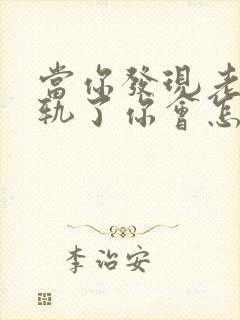 當你發現老
軌了你會怎
李治安